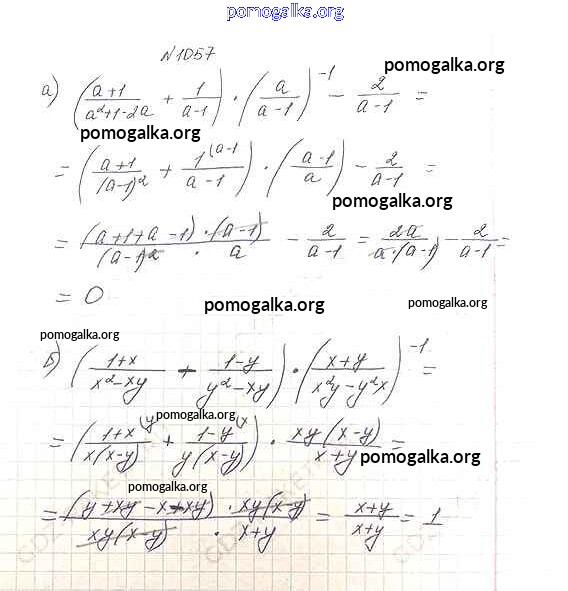 pomogalka.org
N1057
pomogalka.org
а) ((a+1)/(a²+1-2a) + 1/(a-1)) · (a/(a-1))⁻¹ - 2/(a-1) =
pomogalka.org
= ((a+1)/(a-1)² + 1^(a-1/(a-1)) · ((a-1)/a) - 2/(a-1) =
pomogalka.org
= (a+1+a-1) · (a-1)/(a-1)² · a - 2/(a-1) = 2a/a·(a-1) - 2/(a-1) =
= 0
pomogalka.org
pomogalka.org
pomogalka.org
б) ((1+x)/(x²-xy) + (1-y)/(y²-xy)) · ((x+y)/(x²y-y²x))⁻¹ =
pomogalka.org
= ((1+x)^(y/x(x-y) + (1-y)^(x/y(x-y)) · xy(x-y)/(x+y) =
pomogalka.org
pomogalka.org
= (y+xy-x+xy) · xy(x-y)/xy(x-y) · x+y = (x+y)/(x+y) = 1